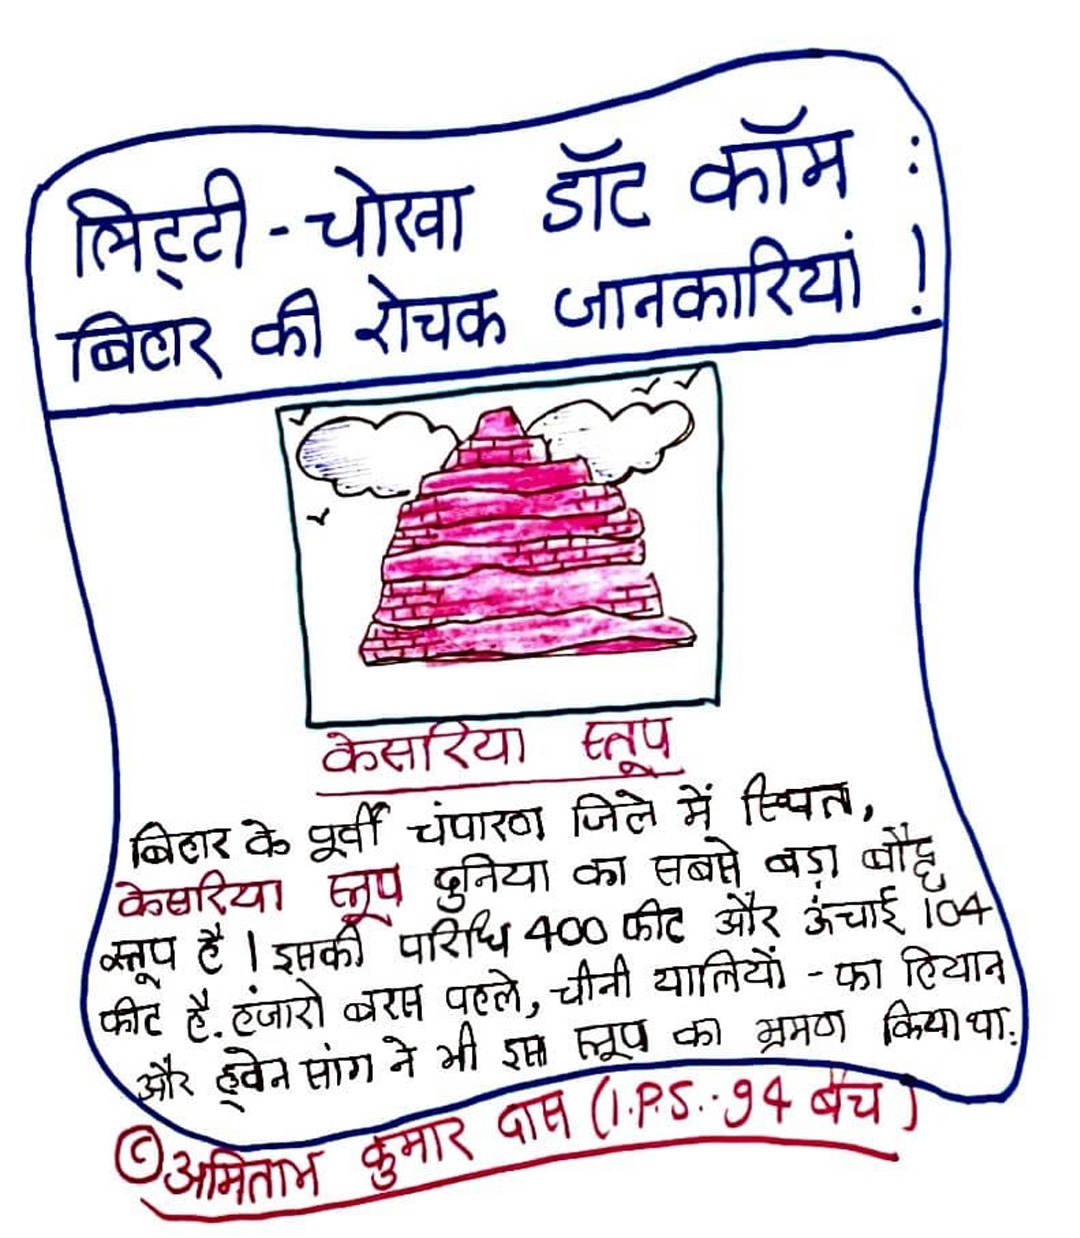 लिट्टी-चोखा डॉट कॉम :
बिहार की रोचक जानकारियां !
केसरिया स्तूप
बिहार के पूर्वी चंपारण जिले में स्थित,
केसरिया स्तूप दुनिया का सबसे बड़ा बौद्ध
स्तूप है । इसकी परिधि 400 फीट और ऊंचाई 104
फीट है. हजारों बरस पहले, चीनी यात्रियों - फा हियान
और ह्वेन सांग ने भी इस स्तूप का भ्रमण किया था.
© अमिताभ कुमार दास (I.P.S.-94 बैच)